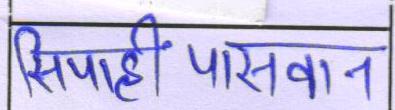 सिपाही पासवान